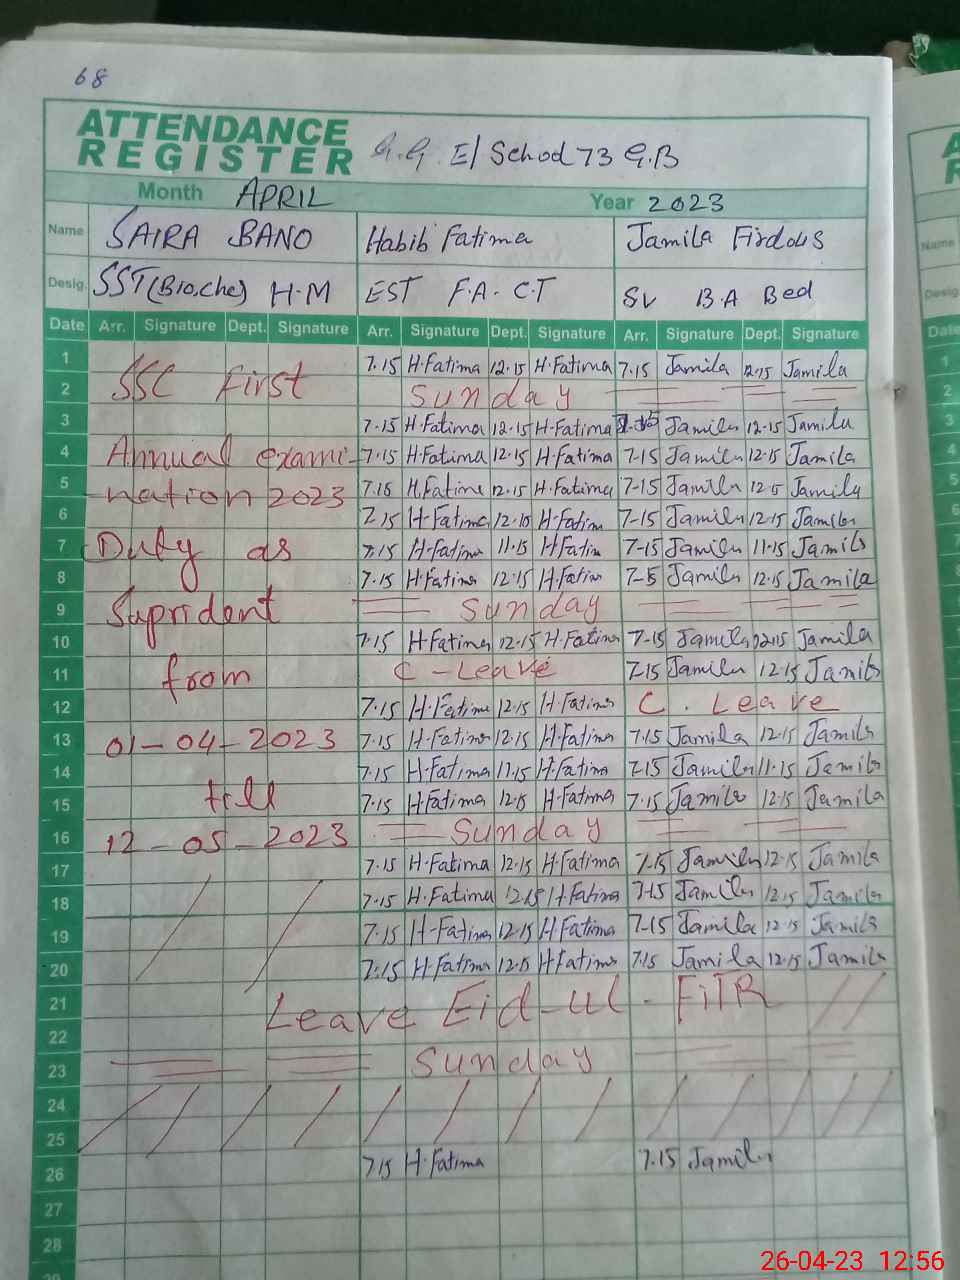 68
ATTENDANCE
REGISTER G.G. E/ School 73 G.B
Month APRIL Year 2023
Name SAIRA BANO Habib Fatima Jamila Firdous
Desig. SST(Bio,che) H.M EST F.A- C.T SV B.A Bed
Date Arr. Signature Dept. Signature Arr. Signature Dept. Signature Arr. Signature Dept. Signature
1 SSC First 7.15 H.Fatima 12.15 H.Fatima 7.15 Jamila 12.15 Jamila
2 Sunday
3 7.15 H.Fatima 12.15 H.Fatima Jamila 12.15 Jamila
4 Annual exami- 7.15 H.Fatima 12.15 H.Fatima 7-15 Jamila 12.15 Jamila
5 nation 2023 7.15 H.Fatima 12.15 H.Fatima 7-15 Jamila Jamila
6 7.15 H.Fatima 12.10 H.Fatim 7-15 Jamila 12.15 Jamila
7 Duty as 7.15 H.Fatima 11.15 H.Fatim 7-15 Jamila 11.15 Jamila
8 7.15 H.Fatima 12.15 H.Fatima 7-15 Jamila 12.15 Jamila
9 Suprident Sunday
10 7.15 H.Fatima 12.15 H.Fatima 7-15 Jamila 12.15 Jamila
11 from C-Leave 7.15 Jamila 12.15 Jamila
12 7.15 H.Fatima 12.15 H.Fatima C. Leave
13 01-04-2023 7.15 H.Fatima 12.15 H.Fatima 7.15 Jamila 12.15 Jamila
14 7.15 H.Fatima 11.15 H.Fatima 7.15 Jamila 11.15 Jamila
15 till 7.15 H.Fatima 12.15 H.Fatima 7.15 Jamila 12.15 Jamila
16 12-05-2023 Sunday
17 7.15 H.Fatima 12.15 H.Fatima 7.15 Jamila 12.15 Jamila
18 7.15 H.Fatima 12.15 H.Fatima 7-15 Jamila 12.15 Jamila
19 7.15 H.Fatima 12.15 H.Fatima 7-15 Jamila 12.15 Jamila
20 7.15 H.Fatima 12.15 H.Fatima 7.15 Jamila 12.15 Jamila
21 Leave Eid-ul-FITR
22
23 Sunday
24
25
26 7.15 H.Fatima 7.15 Jamila
27
28
29
A
R
Name
Desig
Date
1
2
3
4
5
6
7
8
9
10
11
12
13
14
15
16
17
18
19
20
21
22
23
24
25
26
27
28
26-04-23 12:56